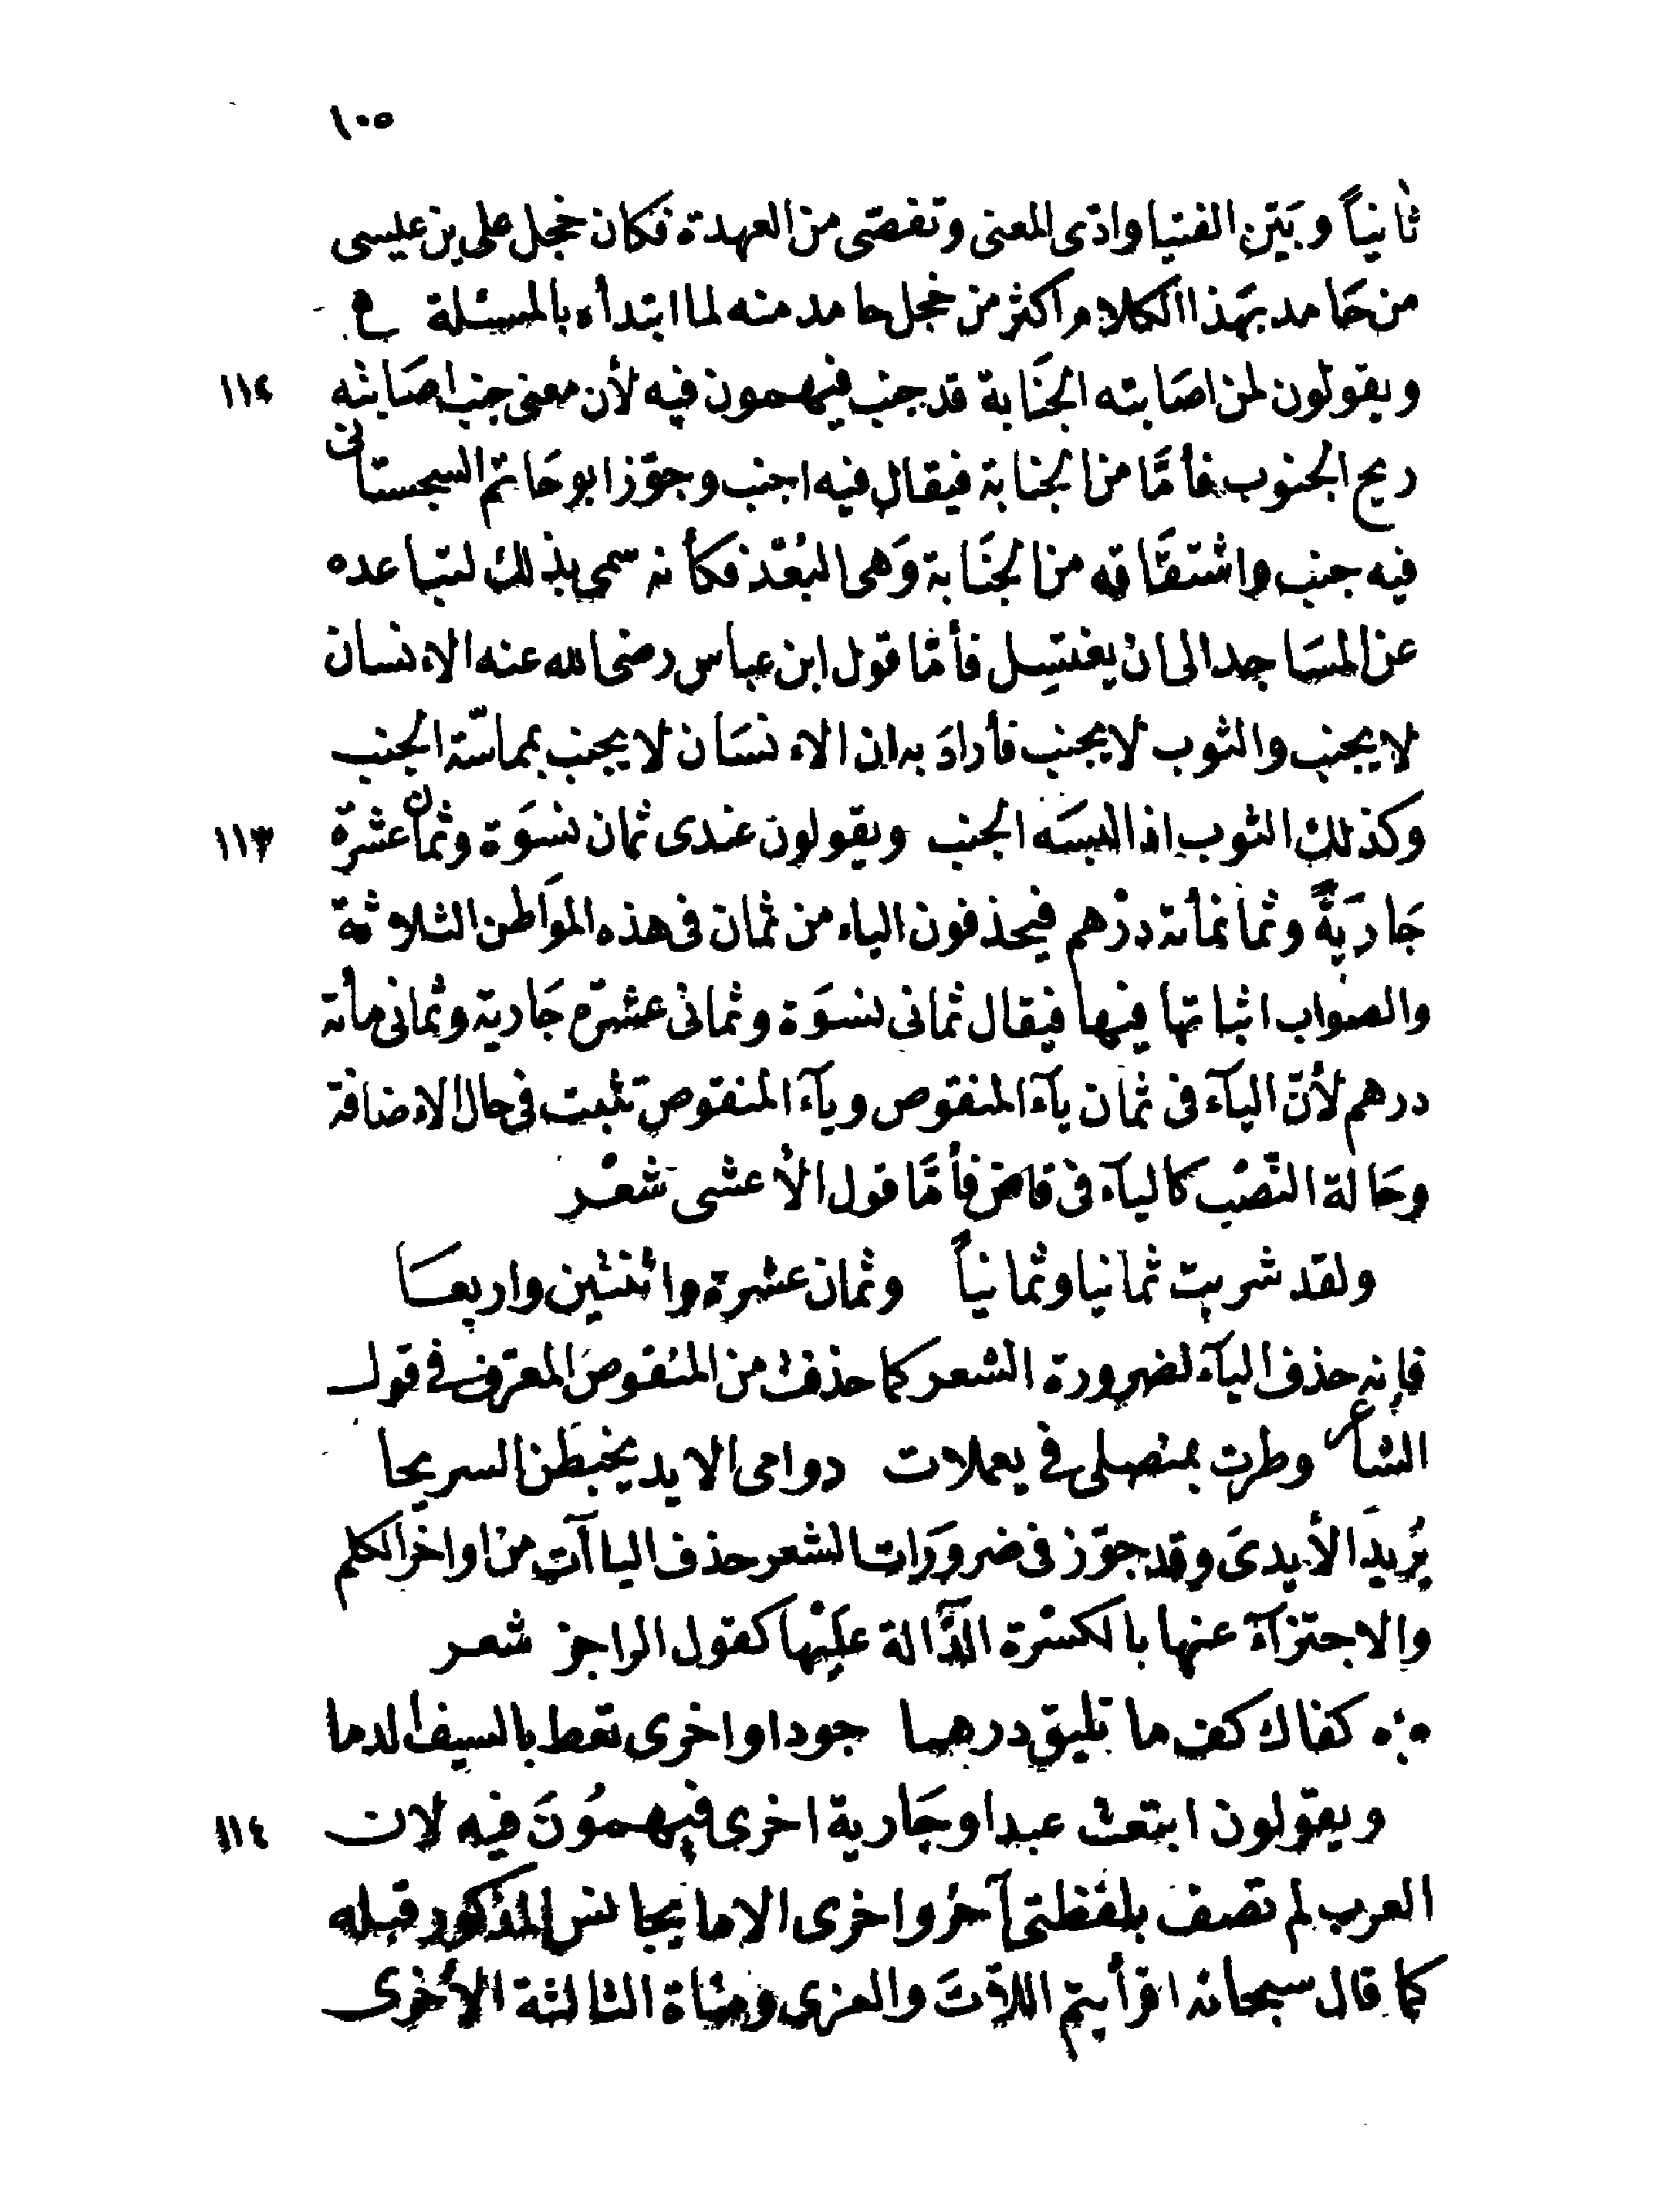 ١٠٥
ثانياً وبَيَّن الفتيا وادّى المعنى وتفصّى من العهدة فكان خجل على بن عليسى
من حَامد بهَذا الكلام اكثر من خجل حامد منه لما ابتدأه بالمسئلة
ويقولون لمن اصَابته الجَنَابة قد جنب فيهمون فيه لأن معنى جنب اصَابته ١١٤
ريح الجنوب فأمَّا من الجنابة فيقال فيه اجنب وجوّز ابو حَاتم السجستانى
فيه جنب واشتقَاقه من الجنَابة وَهى البُعْد فكأنه سمى بذلك لتباعده
عن المسَاجد الى ان يغتسِل فأمّا قول ابن عباس رضى الله عنه الانسان
لا يجنب والثوب لا يجنب فأرادَ به ان الانسَان لا يجنب بمماسّة الجنب
وكذلك الثوب اذا لبسَه الجنب ويقولون عندى ثمان نسوَة وثمان عشرة ١١٣
جَاريَةً وثمانمأئة درْهم فيحذفون الياء من ثمان فى هذه المَواطن الثلاثة
والصواب اثباتها فيها فيقال ثمانى نسوَة وثمانى عشرة جَارية وثمانى مأئة
درهم لأنّ اليآء فى ثمان يآء المنقوص ويآء المنقوص تثبت فى حال الاضافة
وحَالة النّصْب كاليآء فى قاض فأمَّا قول الأعشى شعْر
ولقد شربت ثمانيا وثمانياً وثمان عشرة واثنتين واربعَا
فإنه حذف اليآء لضرورة الشعر كما حذفت من المنقوص المعرّف فى قول
الشاعر وطرت بمنصلى فى يعملات دوامى الايد يخبطَن السريحا
يُريدَ الأيدىَ وقد جوّز فى ضرورَات الشعر حذف الياآت من اواخر الكلم
والاجتزآء عنها بالكسْرة الدَّالة علَيْها كقول الراجز شعر
كفاك كف ما تليق درهما جودا واخرى تعط بالسيف الدما
ويقولون ابتعت عبدا وجَارية اخرى فيهمُونَ فيه لان ١١٤
العرب لم تصف بلفظتى آخر واخرى الا ما يجانس المذكور قبله
كما قال سبحانه افرأيتم اللاّتَ والعزى ومنَاة الثالثة الأخرى